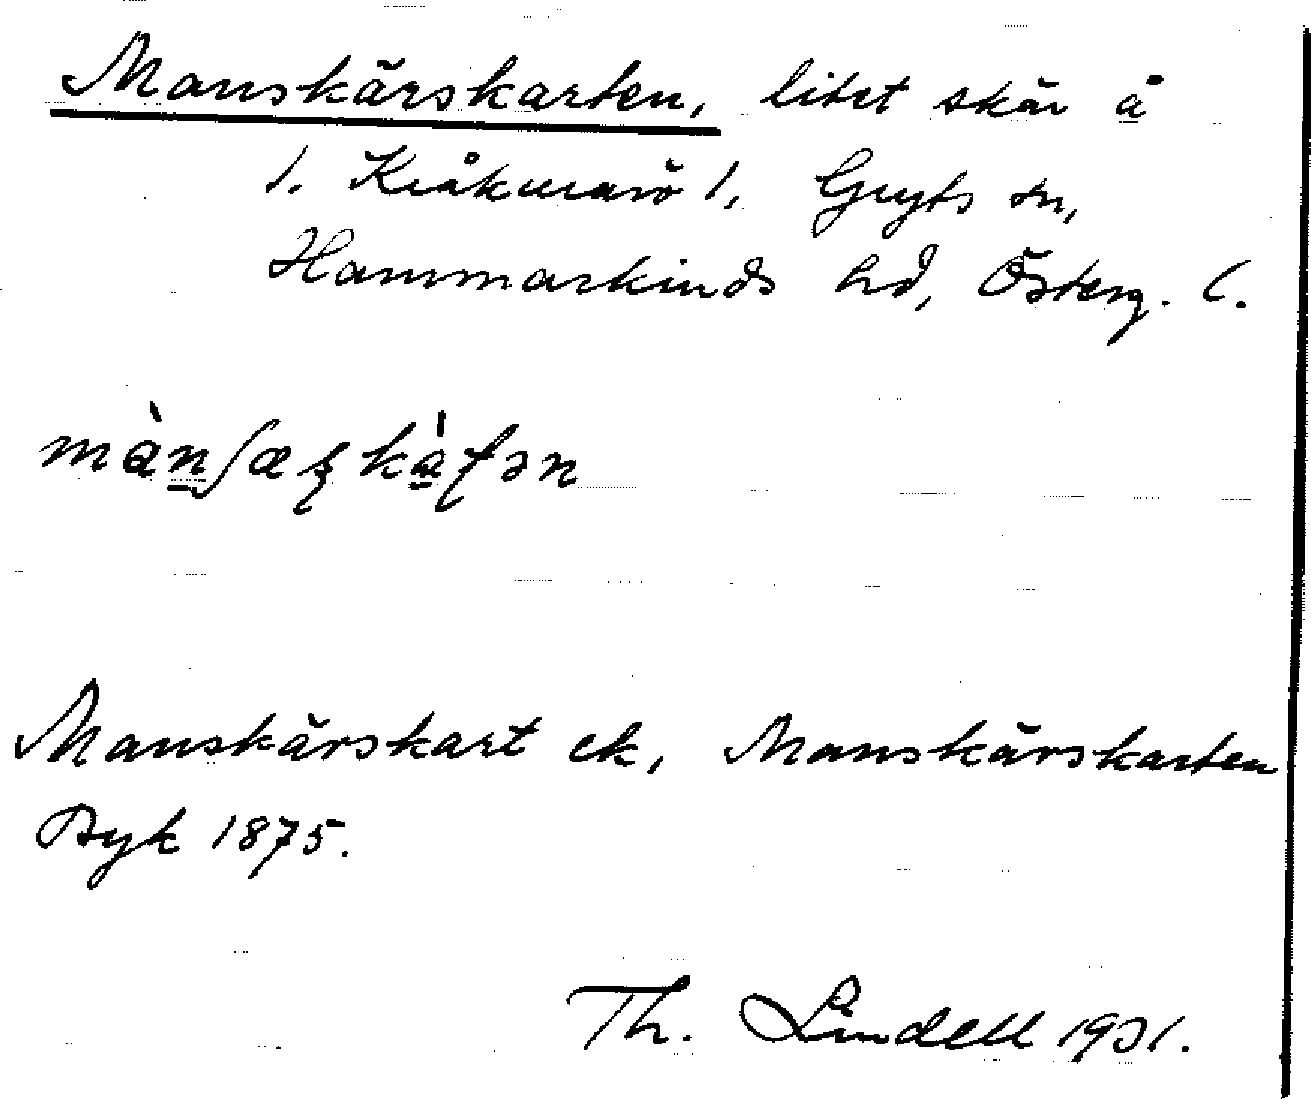 Manskärskarten, litet skär å
1. Kråkmarö 1, Gryts sn,
Hammarkinds hd, Österg. l.
mànʃæʂkàʈən
Manskärskart ek, Manskärskarten
Byk 1875.
Th. Lindell 1931.